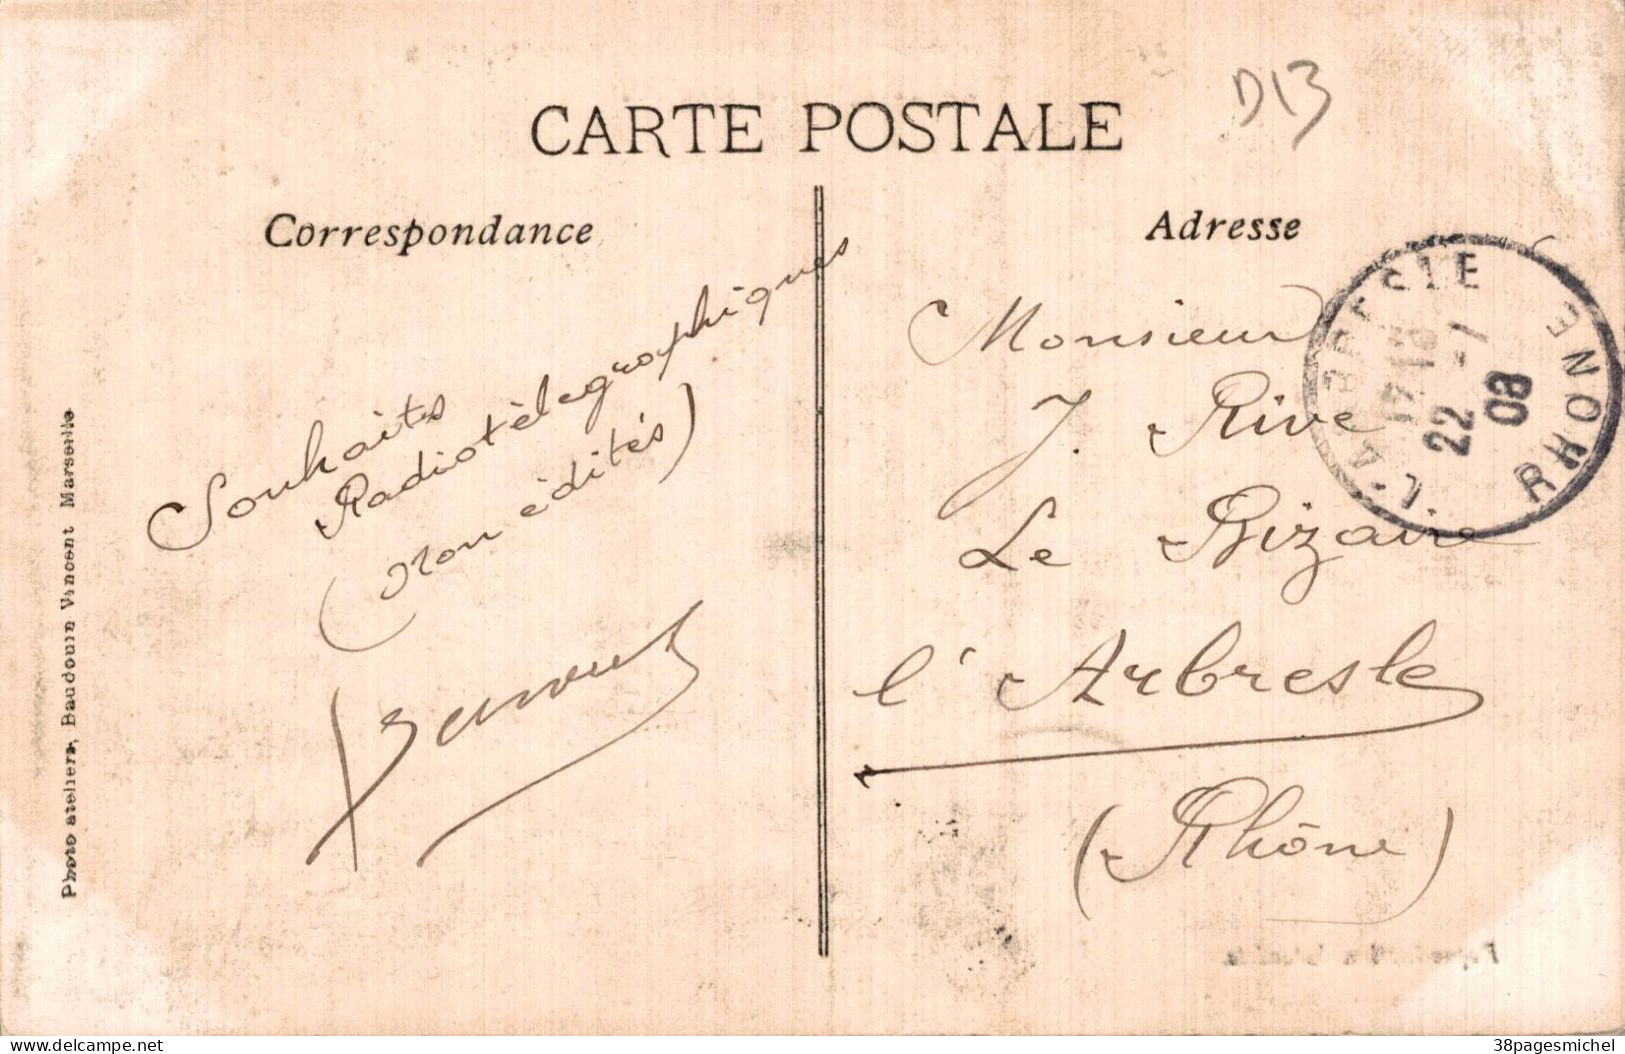 D13
CARTE POSTALE
Correspondance
Adresse
Souhaits
Radiotélégraphiques
(non édités)
Monsieur
J. Rive
Le Bizaire
l'Arbresle
(Rhône)
L'ARBRESLE
22 -1
08
RHONE
Photo ateliers, Baudouin Vincent Marseille
delcampe.net
38pagesmichel